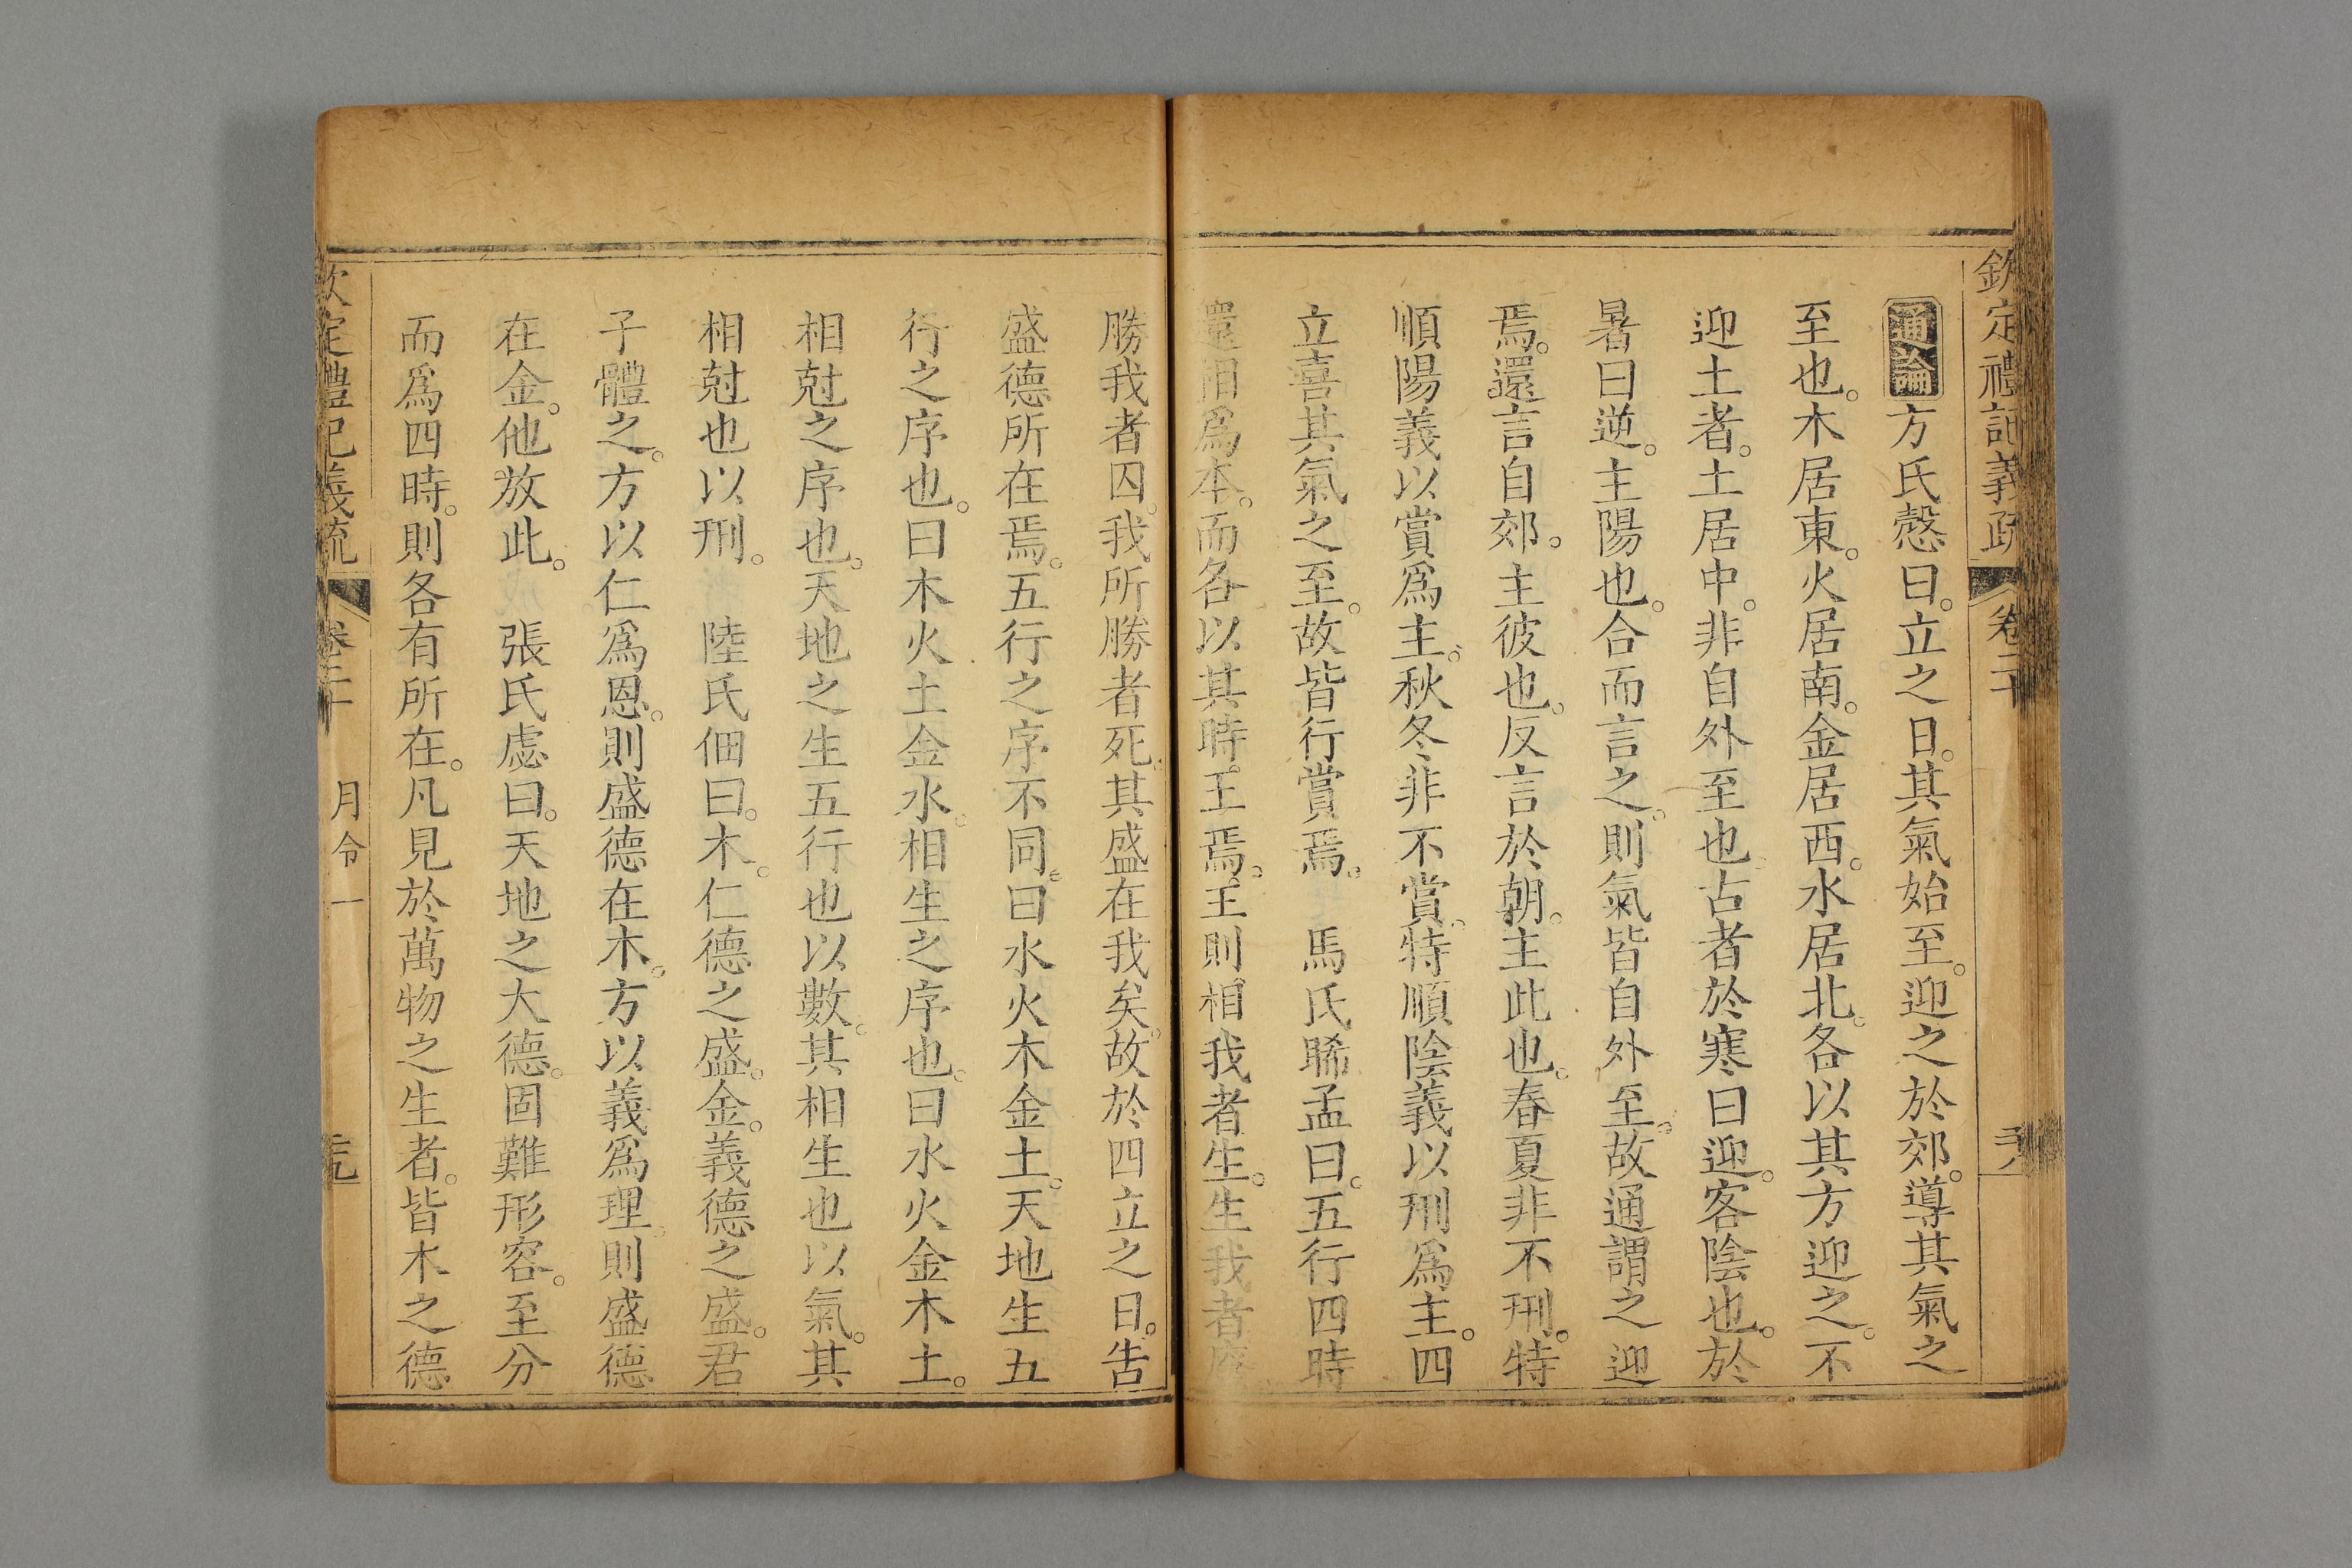 欽定禮記義疏 卷二十 天
通論方氏慤曰。立之日。其氣始至。迎之於郊。導其氣之
至也。木居東。火居南。金居西。水居北。各以其方迎之。不
迎土者。土居中。非自外至也古者於寒曰迎。客陰也。於
暑曰逆。主陽也。合而言之。則氣皆自外至。故通謂之迎
焉。還言自郊。主彼也。反言於朝。主此也。春夏非不刑。特
順陽義以賞爲主。秋冬非不賞。特順陰義以刑爲主。四
立喜其氣之至。故皆行賞焉。 馬氏晞孟曰。五行四時
還相爲本。而各以其時王焉。王則相我者生。生我者廢
勝我者囚。我所勝者死。其盛在我矣。故於四立之日。告
盛德所在焉。五行之序不同。曰水火木金土。天地生五
行之序也。曰木火土金水。相生之序也。曰水火金木土。
相尅之序也。天地之生五行也以數。其相生也以氣。其
相尅也以刑。 陸氏佃曰。木。仁德之盛。金。義德之盛。君
子體之。方以仁爲恩。則盛德在木。方以義爲理。則盛德
在金。他放此。 張氏慮曰。天地之大德。固難形容。至分
而爲四時。則各有所在。凡見於萬物之生者。皆木之德
欽定禮記義疏 卷二十 月令一 元